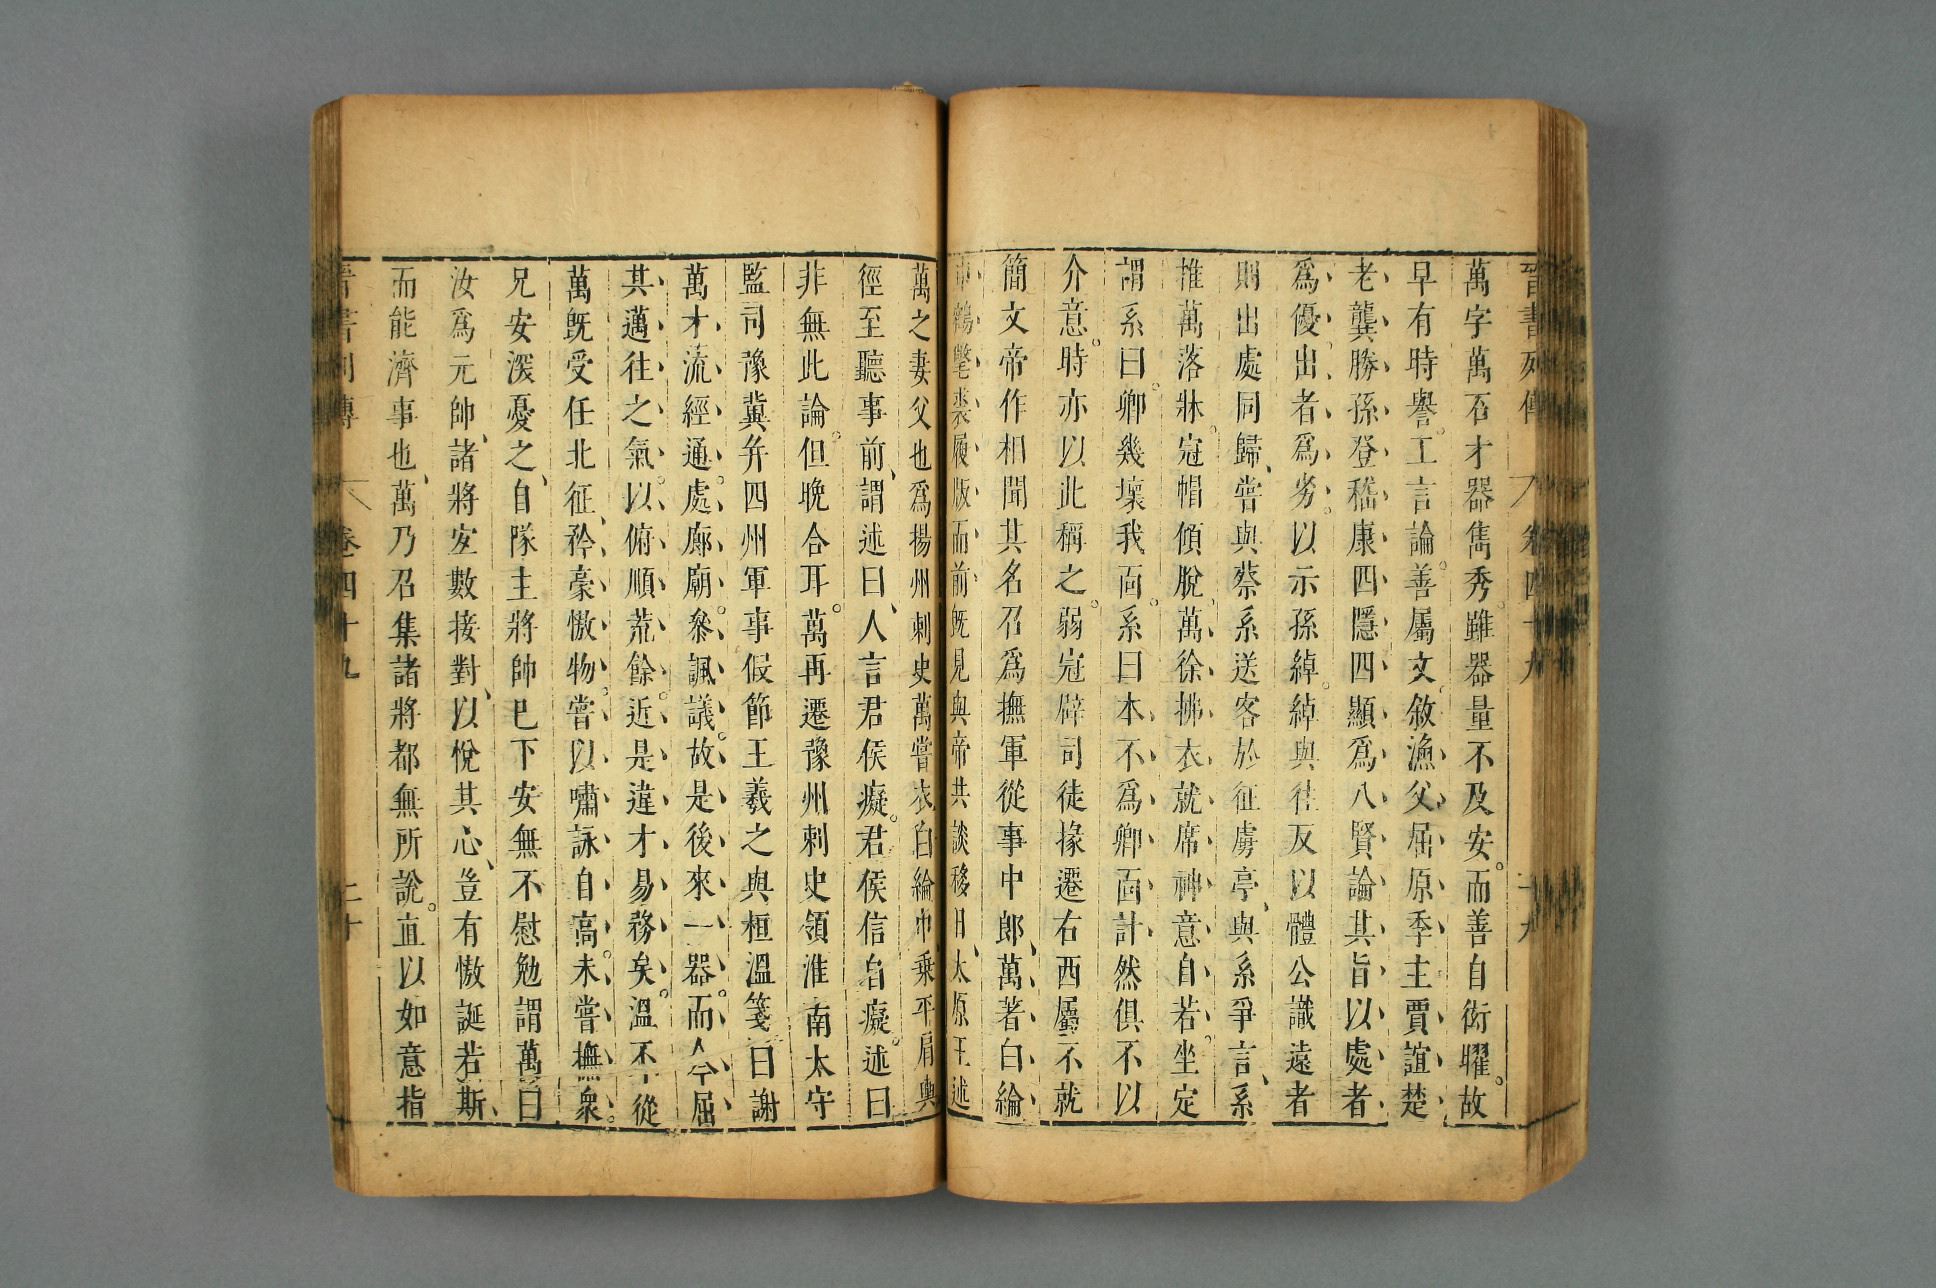 晉書列傳 卷四十九 十九
萬字萬石才器雋秀雖器量不及安。而善自衒曜。故
早有時譽。工言論。善屬文。敘漁父屈原季主賈誼楚
老龔勝孫登嵇康四隱四顯爲八賢論其旨以處者
爲優出者爲劣。以示孫綽。綽與往反以體公識遠者
則出處同歸、嘗與蔡系送客於征虜亭、與系爭言、系
推萬落牀。冠帽傾脫。萬徐拂衣就席神意自若。坐定
謂系曰。卿幾壞我面。系曰本不爲卿面計然俱不以
介意。時亦以此稱之。弱冠辟司徒掾遷右西屬不就
簡文帝作相聞其名召爲撫軍從事中郎、萬著白綸
巾鶴氅裘履版而前旣見與帝共談移日、太原王述
萬之妻父也爲揚州刺史萬嘗衣白綸巾、乘平肩輿
徑至聽事前、謂述曰、人言君侯癡。君侯信自癡。述曰
非無此論。但晚合耳。萬再遷豫州刺史領淮南太守
監司豫冀幷四州軍事假節王羲之與桓溫箋曰謝
萬才流經通。處廊廟。參諷議。故是後來一器。而今屈
其邁往之氣。以俯順荒餘。近是違才易務矣。溫不從
萬旣受任北征、矜豪慠物。嘗以嘯詠自高。未嘗撫衆。
兄安深憂之、自隊主將帥已下安無不慰勉謂萬曰
汝爲元帥、諸將宜數接對、以悅其心、豈有慠誕若斯、
而能濟事也、萬乃召集諸將都無所說。直以如意指
晉書列傳 卷四十九 二十